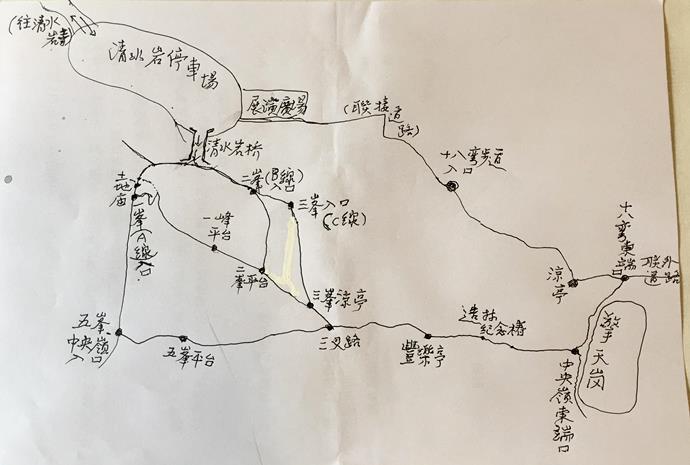 (往清水
岩寺)
清水岩停車場
展演廣場
(聯接道
路)
清水岩桥
十八弯步道
入口
二峯(B線)
入口
三峯入口
(C綫)
土地
庙
一峯(A線)
入口
一峰
平台
二峯平台
三峯凉亭
十八弯東端
口
联外
道路
凉亭
五峯、
中央嶺
入口
五峯平台
三叉路
豐樂亭
造林
紀念椿
擎天岗
中央嶺東端口